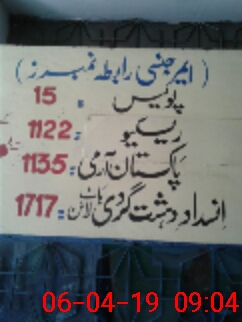 (ایمرجنسی رابطہ نمبرز)
پولیس = 15
ریسکیو = 1122
پاکستان آرمی = 1135
انسداد دہشت گردی ہاٹ لائن = 1717
06-04-19 09:04